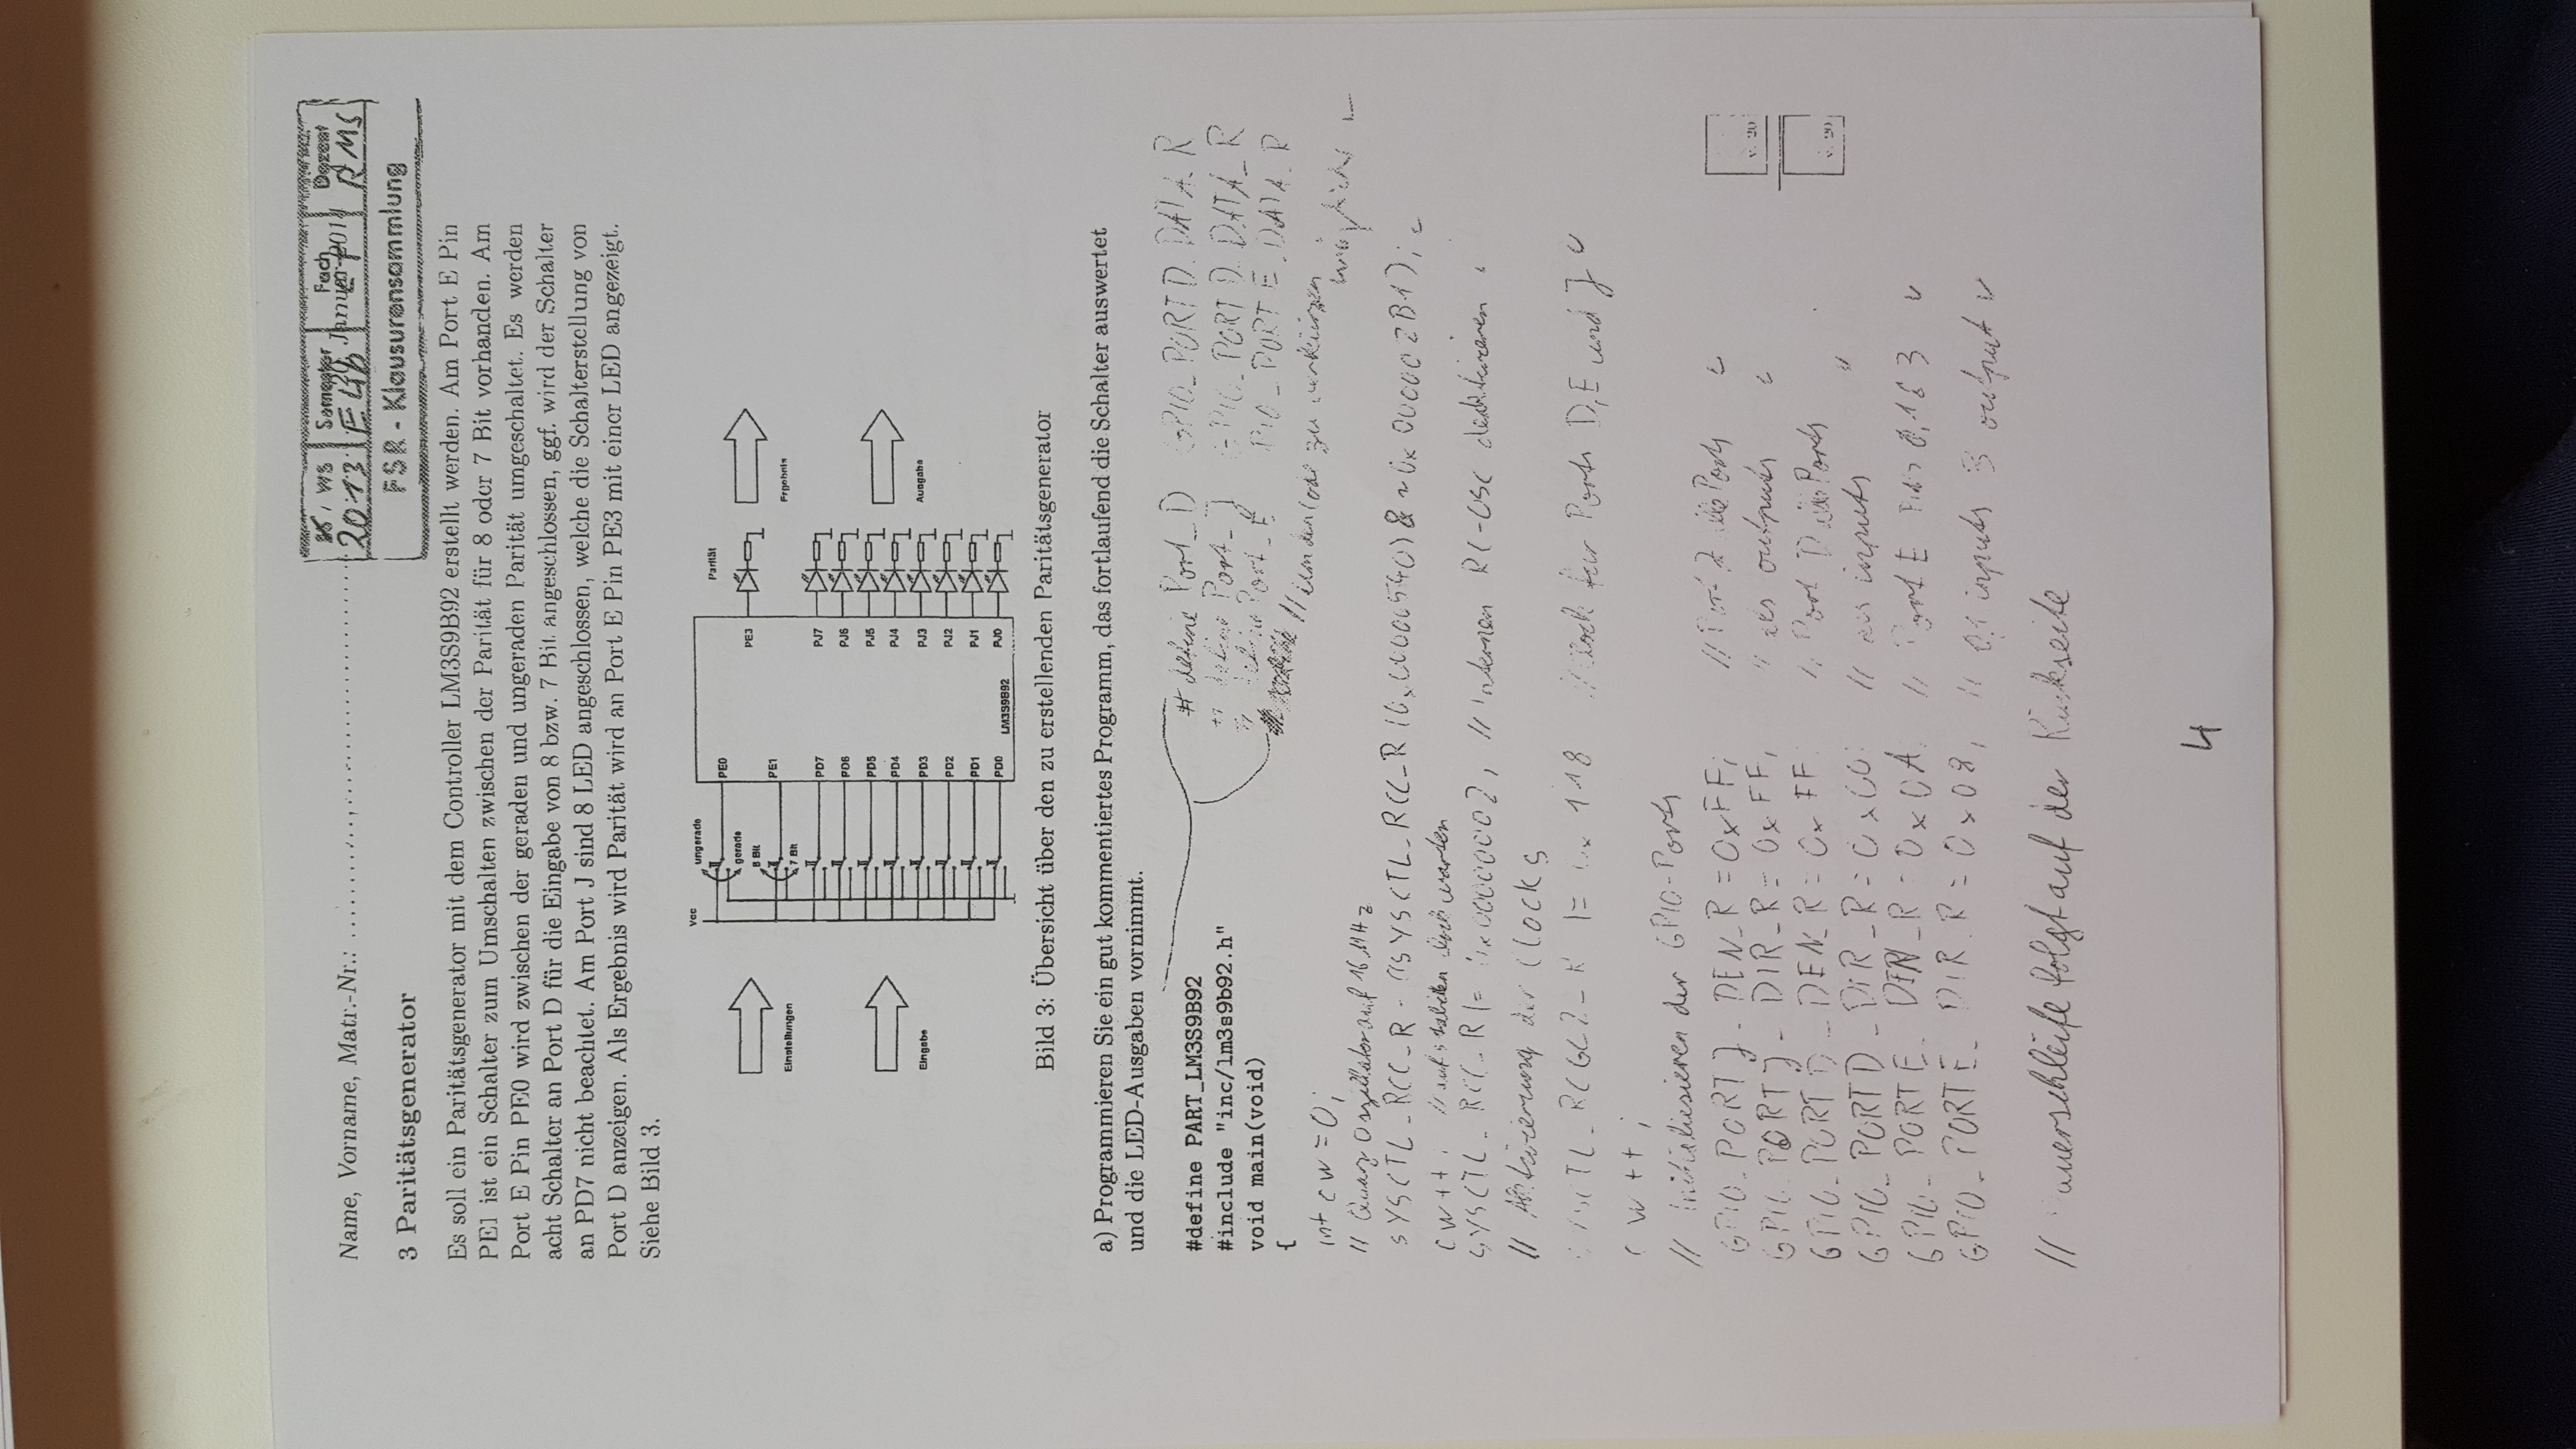 Name, Vorname, Matr.-Nr.:
WS Semester Fach Dozent
2013 E4b Januar 201 RMS
FSR - Klausurensammlung
3 Paritätsgenerator
Es soll ein Paritätsgenerator mit dem Controller LM3S9B92 erstellt werden. Am Port E Pin
PE1 ist ein Schalter zum Umschalten zwischen der Parität für 8 oder 7 Bit vorhanden. Am
Port E Pin PE0 wird zwischen der geraden und ungeraden Parität umgeschaltet. Es werden
acht Schalter an Port D für die Eingabe von 8 bzw. 7 Bit angeschlossen, ggf. wird der Schalter
an PD7 nicht beachtet. Am Port J sind 8 LED angeschlossen, welche die Schalterstellung von
Port D anzeigen. Als Ergebnis wird Parität wird an Port E Pin PE3 mit einer LED angezeigt.
Siehe Bild 3.
Vcc
ungerade
gerade
8 Bit
7 Bit
Einstellungen
Eingabe
PE0
PE1
PD7
PD6
PD5
PD4
PD3
PD2
PD1
PD0
LM3S9B92
Parität
PE3
PJ7
PJ6
PJ5
PJ4
PJ3
PJ2
PJ1
PJ0
Ergebnis
Ausgabe
Bild 3: Übersicht über den zu erstellenden Paritätsgenerator
a) Programmieren Sie ein gut kommentiertes Programm, das fortlaufend die Schalter auswertet
und die LED-Ausgaben vornimmt.
#define PART_LM3S9B92
#include "inc/lm3s9b92.h"
void main(void)
{
# define Port_D GPIO_PORTD_DATA_R
define Port_J GPIO_PORTD_DATA_R
define Port_E PIO_PORTE_DATA_R
// um den Code zu verkürzen
möglich
int cw = 0;
// Quarz Oszillator auf 16 MHz
SYSCTL_RCC_R = (SYSCTL_RCC_R | 0x00000540) & ~0x000002B1);
cw++; // auf stabilen clock warten
SYSCTL_RCC_R |= 0x00000002; // internen RC-OSC deaktivieren
// Aktivierung der Clocks
SYSCTL_RCGC2_R |= 0x118 // Clock für Ports D,E und J
cw++;
// Initialiesieren der GPIO-Ports
GPIO_PORTJ_DEN_R = 0xFF; // Port J alle Ports
GPIO_PORTJ_DIR_R = 0xFF; // als outputs
GPIO_PORTD_DEN_R = 0xFF // Port D alle Ports
GPIO_PORTD_DIR_R = 0x00; // als inputs
GPIO_PORTE_DEN_R = 0x0A; // Port E Pins 0,1 & 3
GPIO_PORTE_DIR_R = 0x08; // 0,1 inputs 3 output
v. 20
v. 20
// auerschleife folgt auf der Rückseite
4